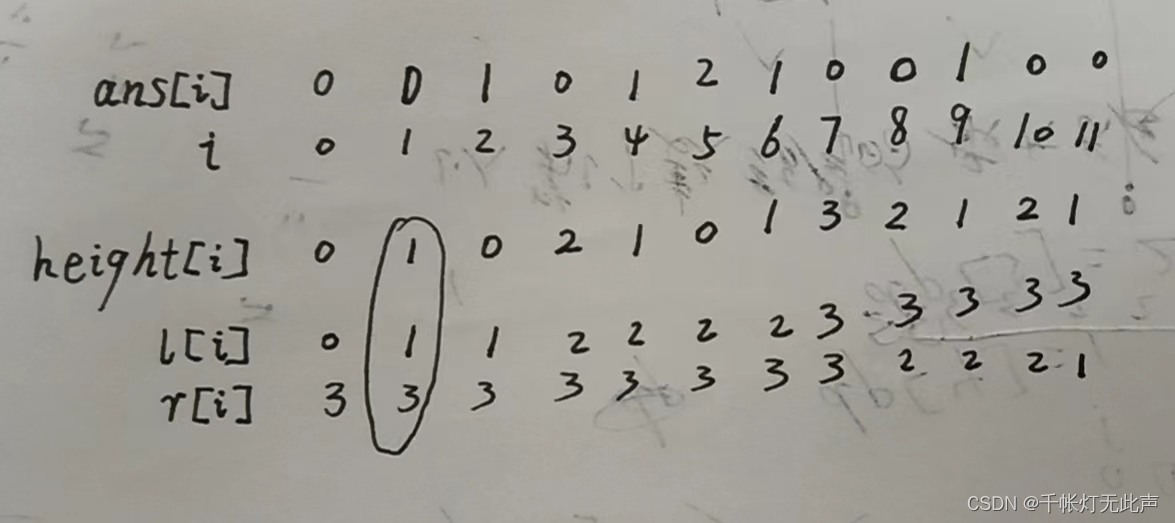 ans[i] 0 0 1 0 1 2 1 0 0 1 0 0
i 0 1 2 3 4 5 6 7 8 9 10 11
height[i] 0 1 0 2 1 0 1 3 2 1 2 1
l[i] 0 1 1 2 2 2 2 3 3 3 3 3
r[i] 3 3 3 3 3 3 3 3 2 2 2 1
CSDN @千帐灯无此声